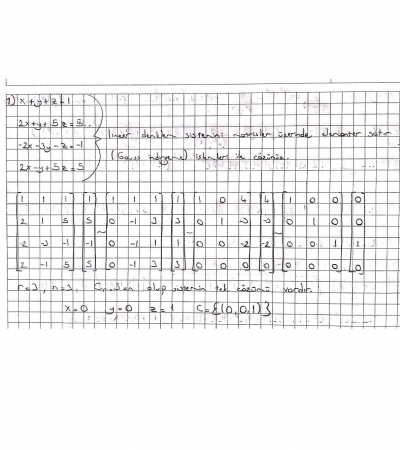 1) x+y+z=1
2x+y+5z=5
-2x-3y-z=-1
2x-y+5z=5
lineer denklem sistemini matrisler üzerinde elementer satır
(Gauss indirgeme) işlemleri ile çözünüz.
1 1 1 | 1 | 1 1 1 | 1 | 1 0 4 | 4 | 1 0 0 | 0
2 1 5 | 5 | 0 -1 3 | 3 | 0 1 -3 | -3 | 0 1 0 | 0
-2 -3 -1 | -1 | 0 -1 1 | 1 | 0 0 -2 | -2 | 0 0 1 | 1
2 -1 5 | 5 | 0 -1 3 | 3 | 0 0 0 | 0 | 0 0 0 | 0
r=3, n=3, olup sistemin tek çözümü vardır.
x=0 y=0 z=1 Ç={(0,0,1)}